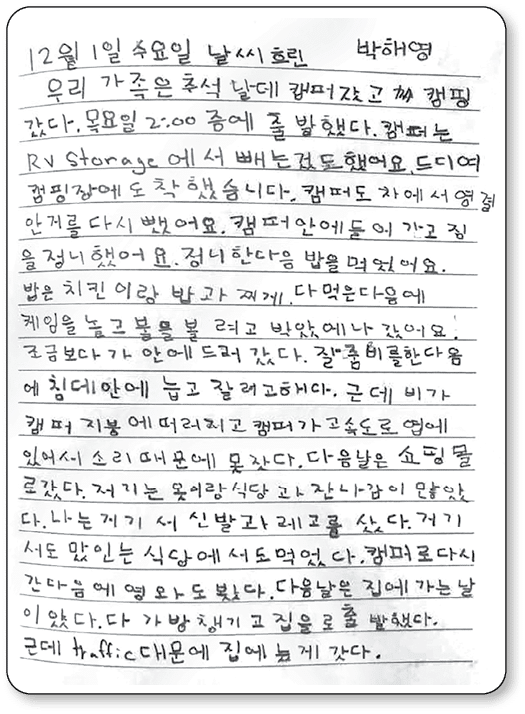 12월 1일 수요일 날씨 흐린 박해영
우리 가족은 추석 날데 캠퍼 갔고 캠핑
갔다. 목요일 2:00 중에 출발했다. 캠퍼는
RV Storage 에서 빼는것도 했어요. 드디여
캠핑장에 도착했습니다. 캠퍼도 차에서 영결
안거를 다시 뺏어요. 캠퍼 안에 들어 가고 짐
을 정니 했어요. 정니한다음 밥을 먹었어요.
밥은 치킨이랑 밥과 찌게. 다먹은다음에
케임을 놀고 불을볼 려고 박앝에나 갔어요.
조금보다가 안에 드러 갔다. 잘 줌비를한다음
에 침데안에 눕고 잘려고해다. 근데 비가
캠퍼 지붕에 떠러지고 캠퍼가 고속도로 엽에
있어서 소리 때문에 못 잤다. 다음날은 쇼핑몰
로갔다. 저기는 옷이랑 식당과 잔나감이 많았
다. 나는 거기서 신발과 레고를 샀다. 거기
서도 맜인는 식당에서도 먹었다. 캠퍼로 다시
간다음에 영와도 봤다. 다음날은 집에 가는 날
이 았다. 다 가방 챙기고 집을로 출발했다.
근데 traffic 대문에 집에 늦게 갔다.